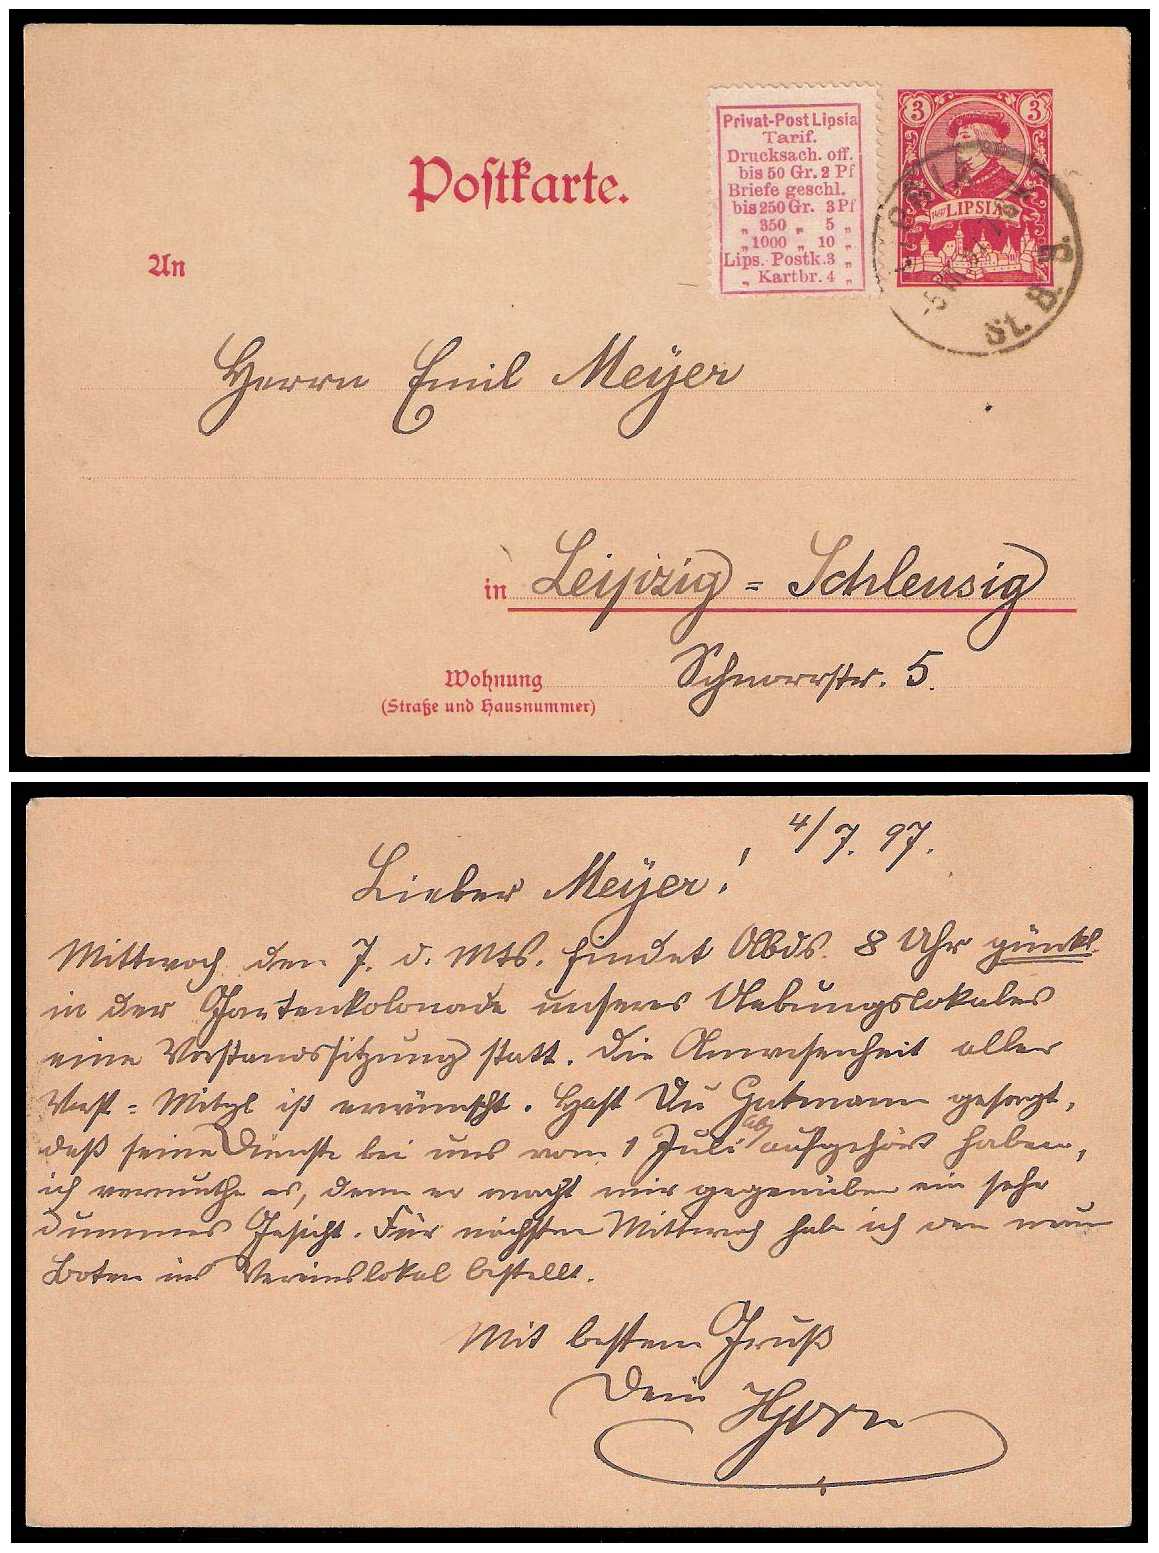 Postkarte.
An
Privat-Post Lipsia
Tarif.
Drucksach. off.
bis 50 Gr. 2 Pf
Briefe geschl.
bis 250 Gr. 3 Pf
„ 350 „ 5 „
„ 1000 „ 10 „
Lips. Postk. 3 „
„ Kartbr. 4 „
3 3
LIPSIA
St. B. P.
Herrn Emil Meÿer
in Leipzig = Schleusig
Schnorrstr. 5.
Wohnung
(Straße und Hausnummer)
4/7. 97.
Lieber Meÿer!
Mittwoch den 7. d. Mts. findet Abds. 8 Uhr pünktl.
in der Gartenkolonade unseres Uebungslokales
eine Vorstandssitzung statt. Die Anwesenheit aller
Vorst = Mitgl ist erwünscht. Hast Du Gutmann gesagt,
daß seine Dienste bei uns vom 1 Juli ab aufgehört haben,
ich vermuthe es, denn er macht mir gegenüber ein sehr
dummes Gesicht. Für nächsten Mittwoch habe ich den neuen
Boten ins Vereinslokal bestellt.
Mit bestem Gruß
Dein Horn